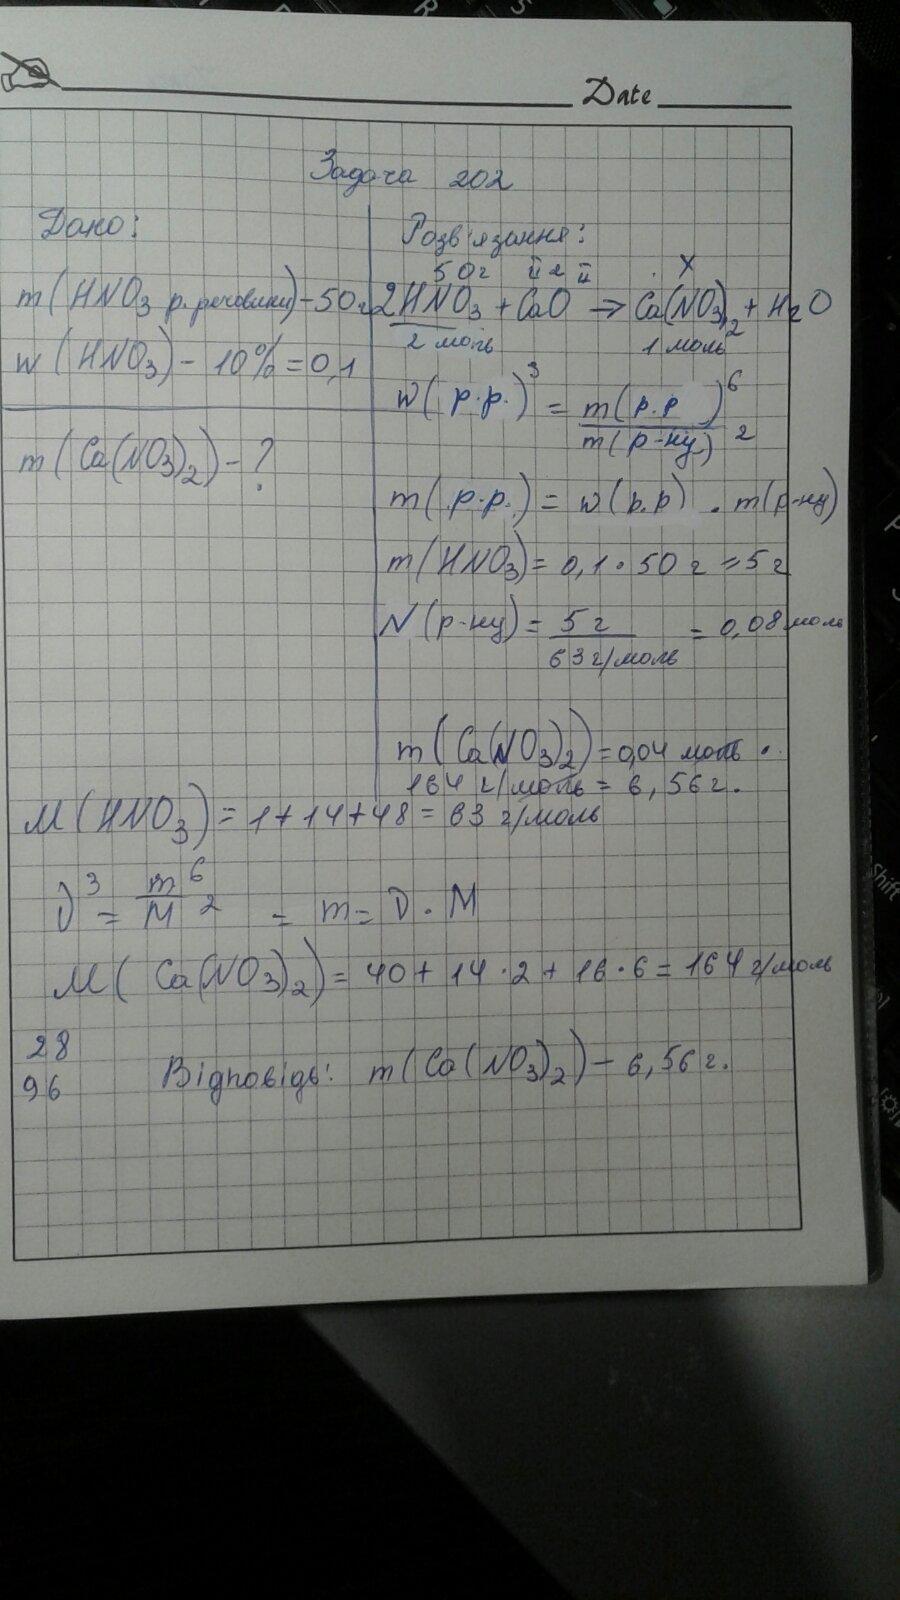 Date
Задача 202
Дано:
m(HNO3 р. речовини) - 50г
w(HNO3) - 10% = 0,1
m(Ca(NO3)2) - ?
Розв'язання:
50г X
2HNO3 + CaO → Ca(NO3)2 + H2O
2 моль 1 моль
w(р.р.)3 = m(р.р)6 / m(р-ну) 2
m(р.р.) = w(р.р) · m(р-ну)
m(HNO3) = 0,1 · 50г = 5г
N(р-ну) = 5г / 63 г/моль = 0,08 моль
m(Ca(NO3)2) = 0,04 моль ·
164 г/моль = 6,56г.
M(HNO3) = 1+14+48 = 63 г/моль
ν3 = m6 / M 2 = m = ν · M
M(Ca(NO3)2) = 40 + 14 · 2 + 16 · 6 = 164 г/моль
28
96
Відповідь: m(Ca(NO3)2) - 6,56г.
Shift